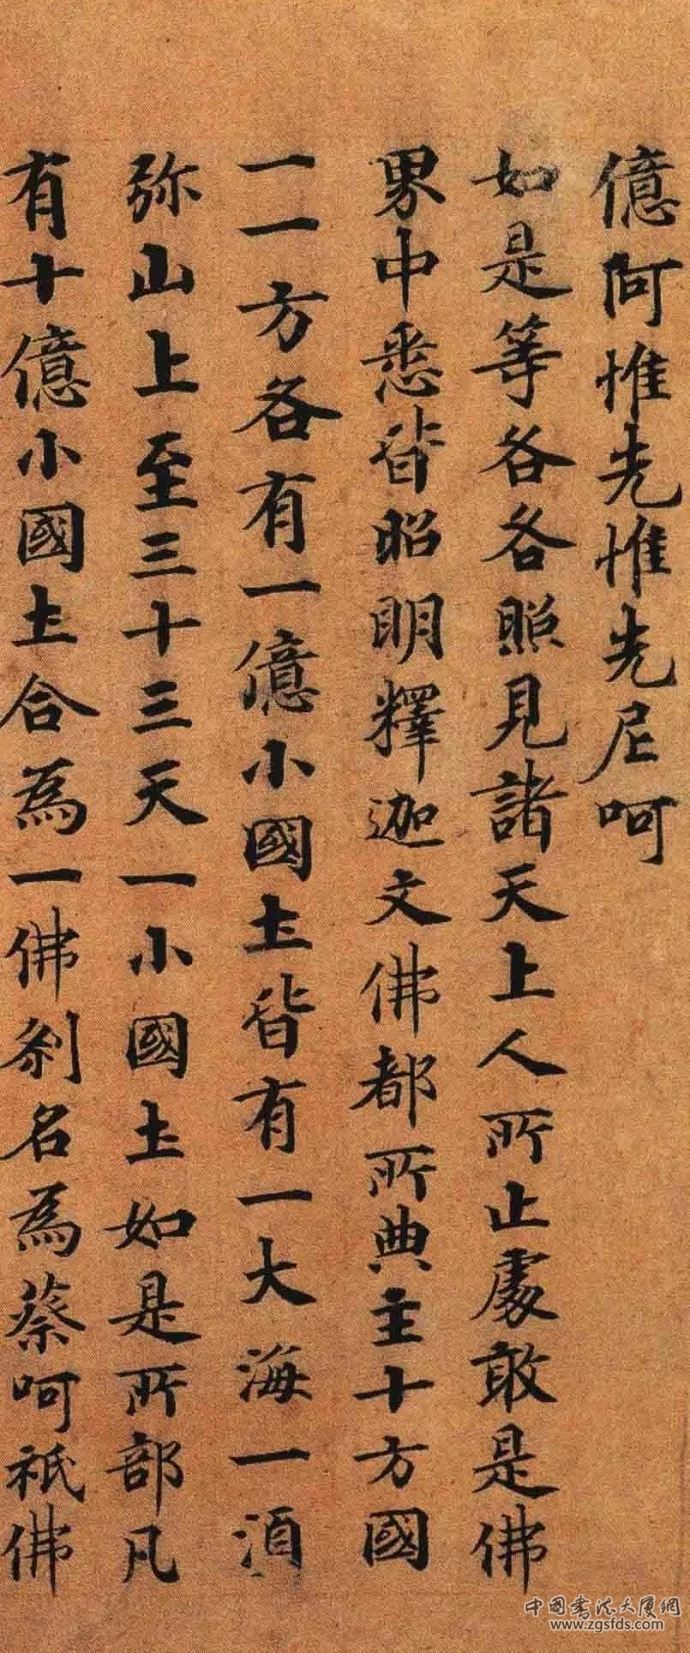 億阿惟先惟先尼呵
如是等各各照見諸天上人所止處敢是佛
界中悉皆昭明釋迦文佛都所典主十方國
一一方各有一億小國土皆有一大海一須
弥山上至三十三天一小國土如是所部凡
有十億小國土合為一佛剎名為蔡呵祇佛
中国书法大厦網
www.zgsfds.com